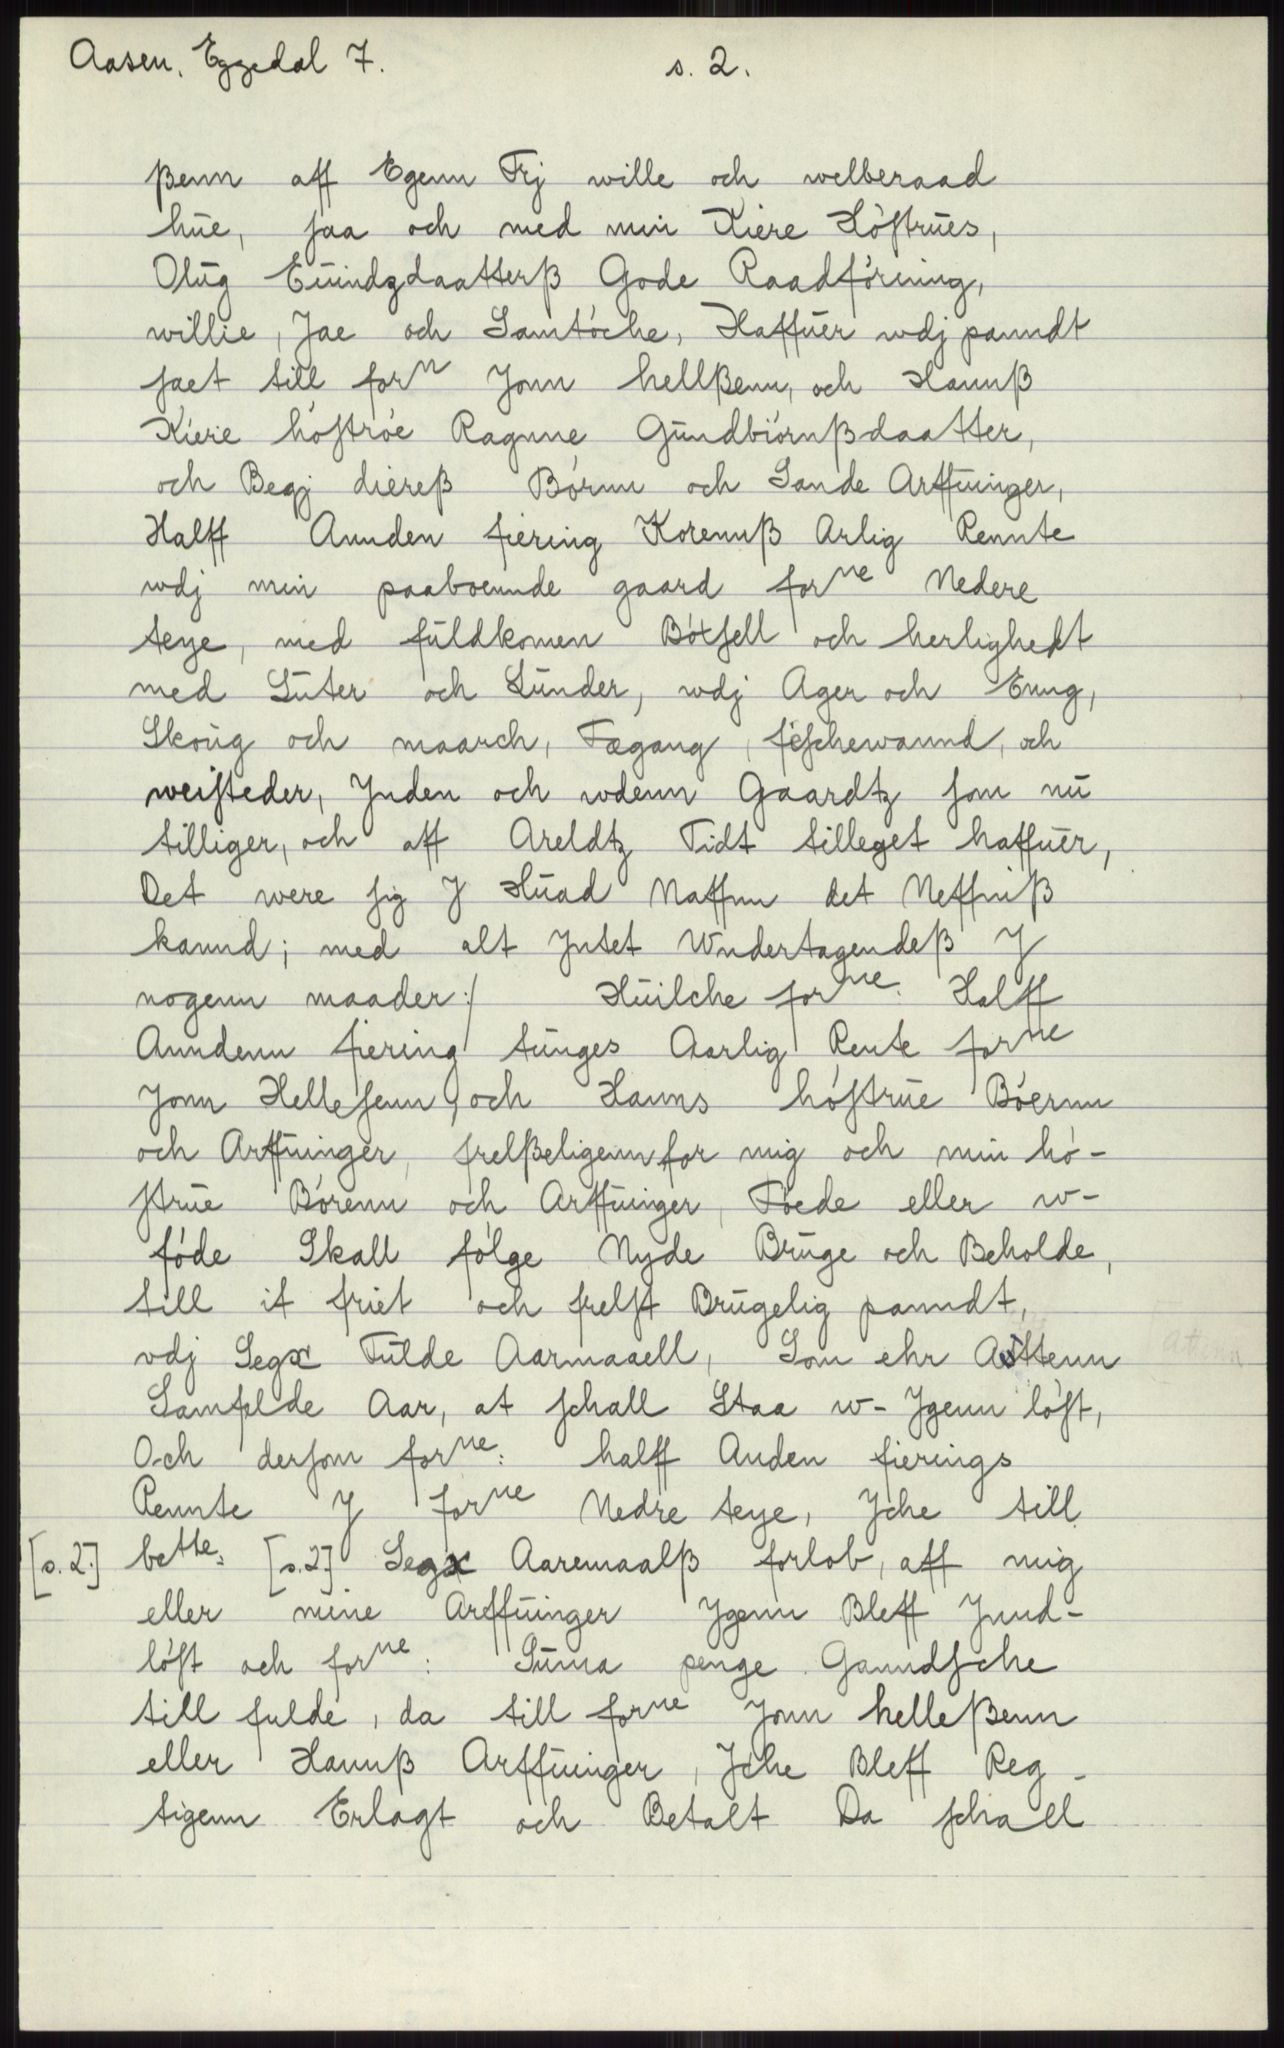 Aasen. Eggedal 7. s. 2.
ßenn aff Egenn Frj wille och welberaad
hūe, saa och med min Kiere Hóstrūes,
Olūg Eūindzdaatterß Gode Raadfórning,
willie, Jae och Samtóche, Haffūer wdj panndt
saet till forn Jonn hellßenn, och Hannß
Kiere hóstróe Ragnne Gūndbiórnßdaatter,
och Begj diereß Bórnn och Sande Arffuinger,
Halff Annden fiering Korennß Arlig Rennte
wdj min paaboennde gaard forne Nedere
teye, med fūldkomen Bótsell och herlighedt
med Lūter och Lūnder, wdj Ager och Enng,
Skoūg och maarch, Fægang, fischewannd, och
weisteder, Jnden och wdenn Gaardtz som nū
tilliger, och aff Areldtz Tidt tilleget haffūer,
Det were sig J Hūad Naffnn det Neffniß
kannd; med alt Jntet Wndertagendeß J
nogenn maader:/ Hūilche forne: Halff
Anndenn fiering tūnges Aarlig Rente forne
Jonn Hellesenn, och Hanns hóstrūe Bóernn
och Arffūinger, frelßeligenn for mig och min hó-
strūe Bórenn och Arffūinger, Fóede eller w-
fóde Skall fólge Nyde Brūge och Beholde,
till it friet och frelst Brūgelig panndt,
vdj Segx Fūlde Aarmaaell, Som ehr Attenn Attenn
Samfelde Aar, at schall Staa w- Jgenn lóst,
Och dersom forne: halff Anden fierings
Rennte J forne Nedre teye, Jche till
[s. 2.] bette: [s.2] Segx Aaremaalß forlob, aff mig
eller mine Arffūinger Jgenn Bleff Jnnd-
lóst och forne: Sūma penge Ganndsche
till fulde, da till forne Jonn helleßenn
eller Hannß Arffūinger, Jche Bleff Reg-
tigenn Erlagt och Betalt Da schall